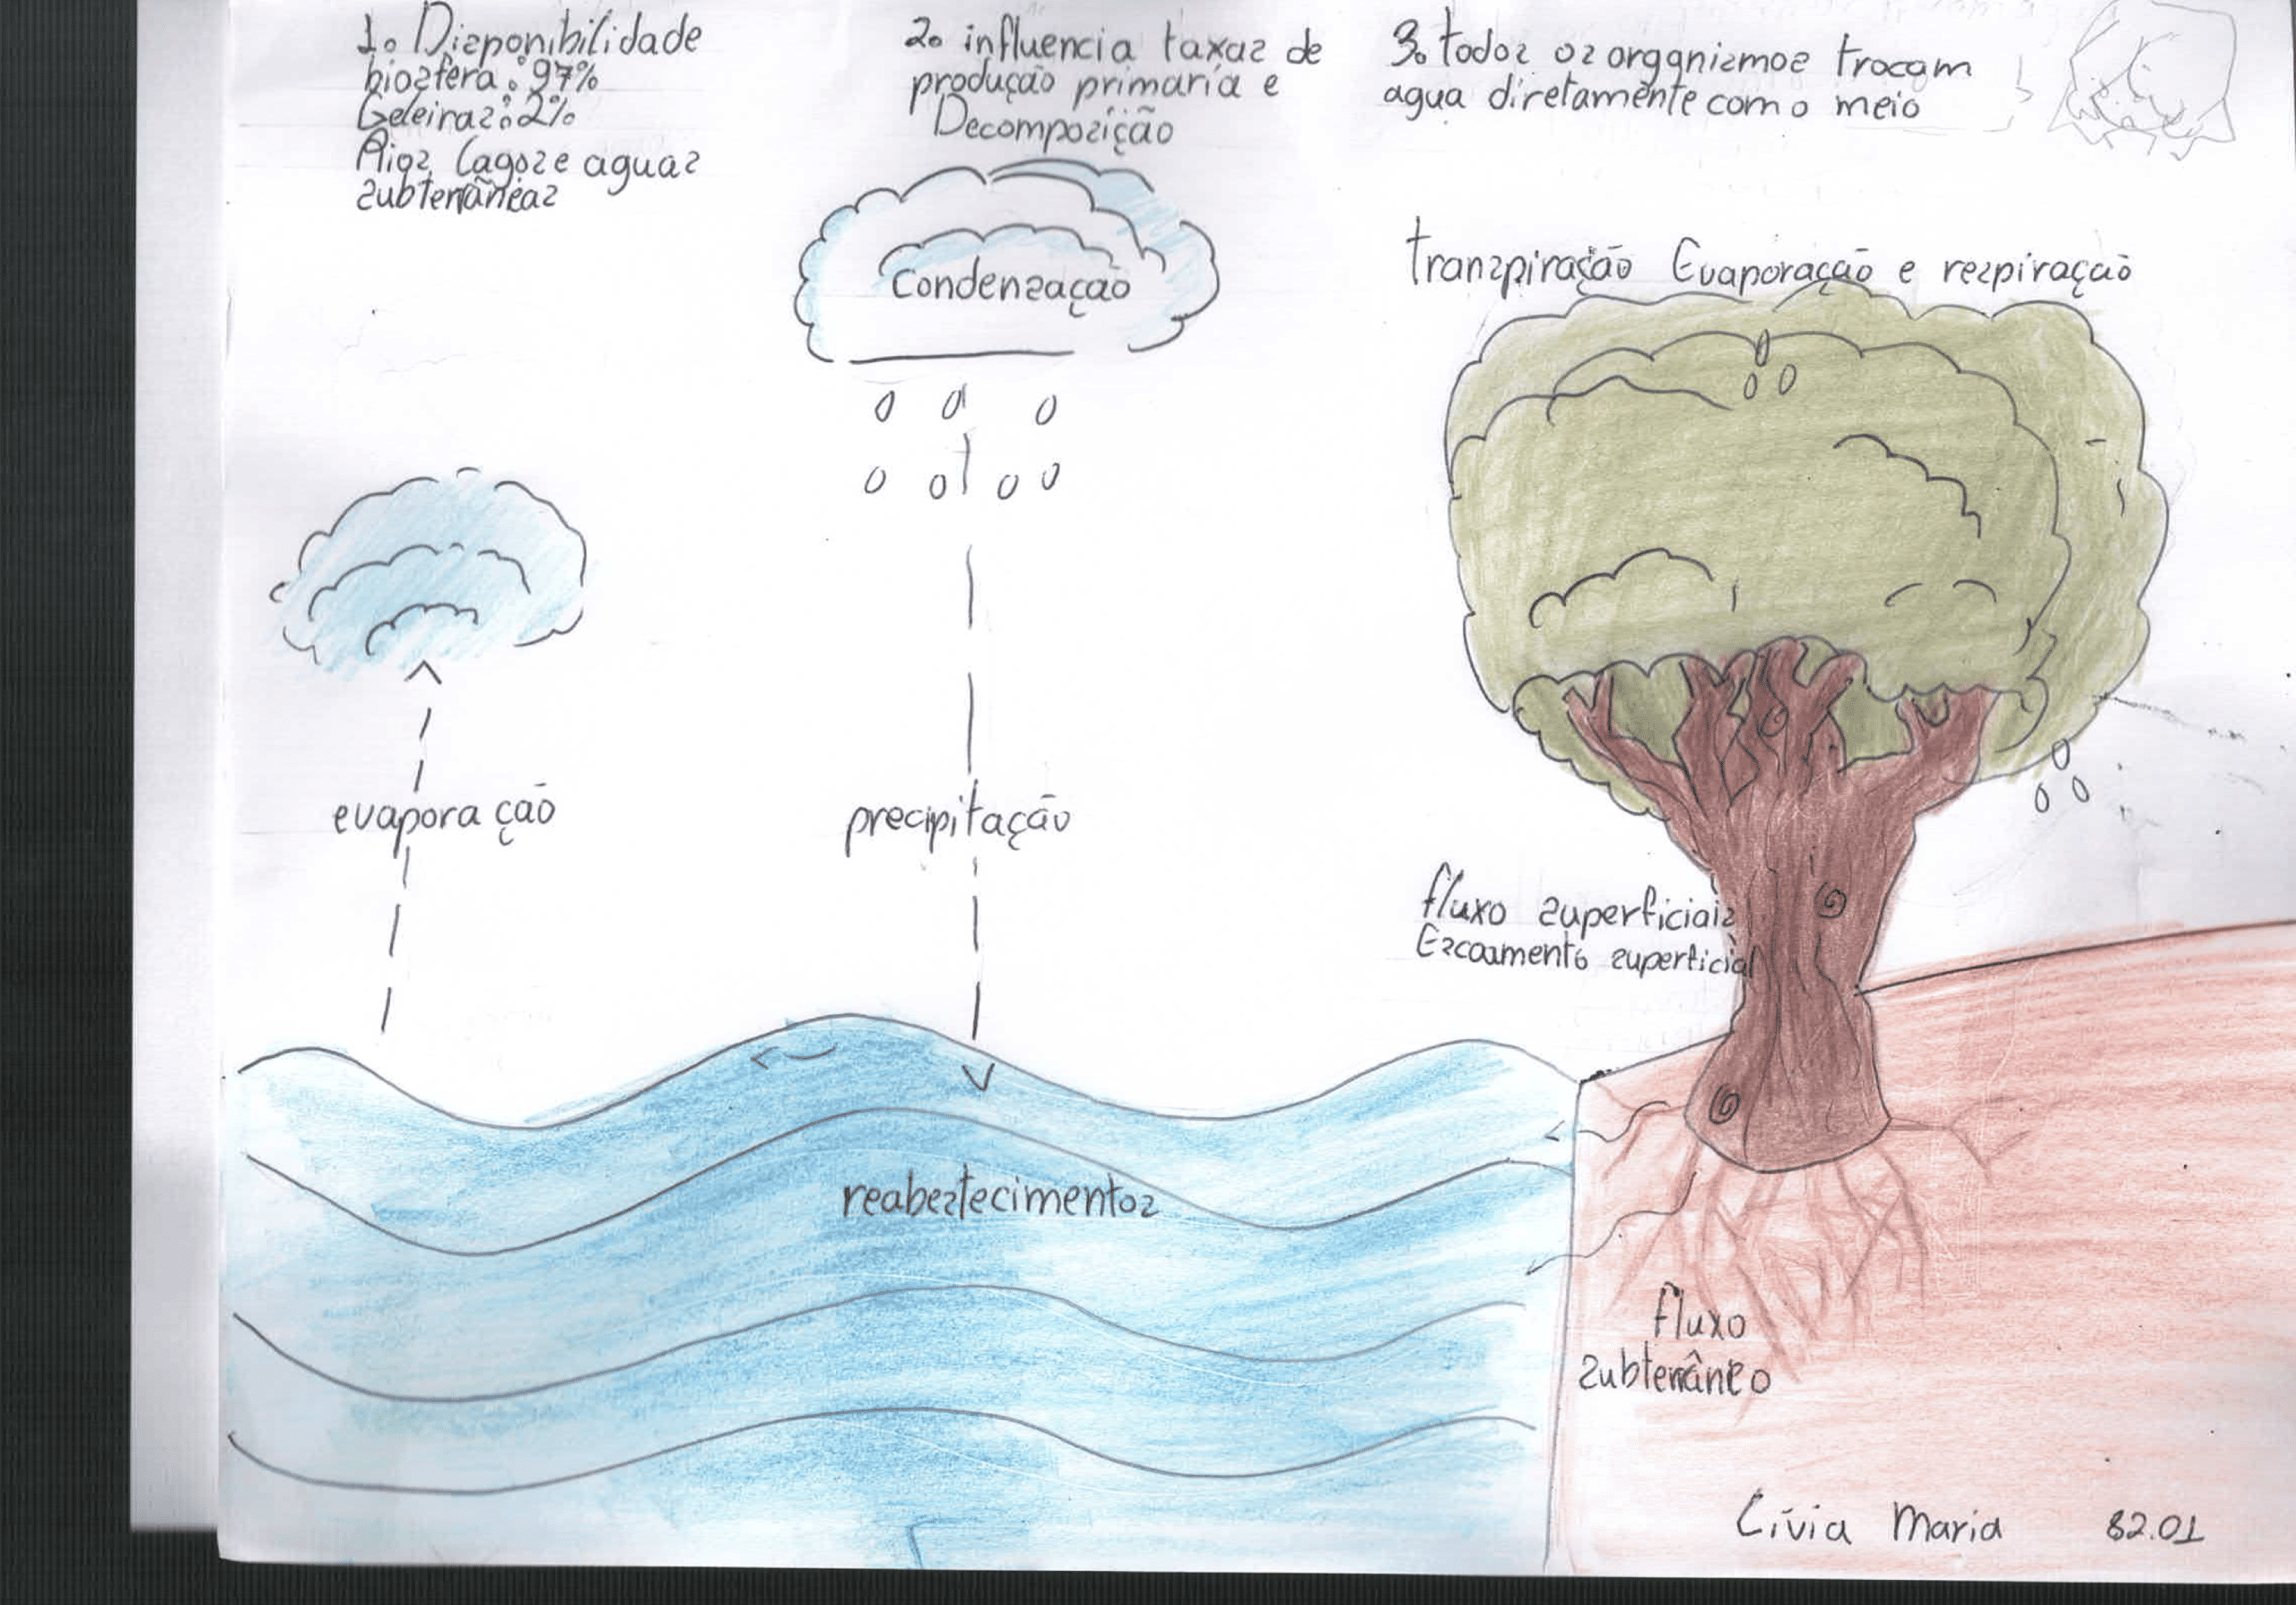 1. Disponibilidade
biosfera: 97%
Geleiras: 2%
Rios, lagos e aguas
subterrâneas
2. influencia taxas de
produção primaria e
Decomposição
3. todos os organismos trocam
agua diretamente com o meio
Condensação
transpiração Evaporação e respiração
evaporação
precipitação
fluxo superficiais
Escoamento superficial
reabestecimentos
fluxo
subterrâneo
Lívia Maria 82.01